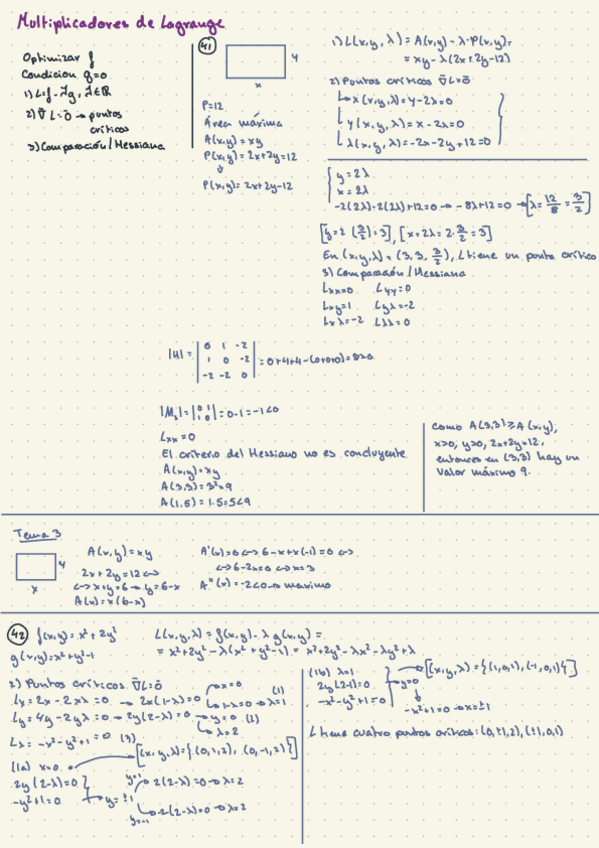 Multiplicadores de Lagrange
Optimizar f
Condicion g=0
1) L=f-λg, λ∈ℝ
2) ∇̄L=0̄ → puntos
críticos
3) Comparación/Hessiana
41
y
x
P=12
Área máxima
A(x,y)=xy
P(x,y)=2x+2y=12
↓
P(x,y)=2x+2y-12
1) L(x,y,λ)=A(x,y)-λ·P(x,y)=
=xy-λ(2x+2y-12)
2) Puntos críticos ∇̄L=0̄
↳ x(x,y,λ)=y-2λ=0
↳ y(x,y,λ)=x-2λ=0
↳ λ(x,y,λ)=-2x-2y+12=0
y=2λ
x=2λ
-2(2λ)-2(2λ)+12=0 → -8λ+12=0 → [λ=12/8=3/2]
[y=2(3/2)=3], [x=2λ=2·3/2=3]
En (x,y,λ)=(3,3,3/2), L tiene un punto crítico
3) Comparación/Hessiana
Lxx=0 Lyy=0
Lxy=1 Lyλ=-2
Lxλ=-2 Lλλ=0
|H|= | 0 1 -2 |
| 1 0 -2 | =0+4+4-(0+0+0)=8>0
| -2 -2 0 |
|M₂|= | 0 1 | =0-1=-1<0
| 1 0 |
Lxx=0
El criterio del Hessiano no es concluyente
A(x,y)=xy
A(3,3)=3²=9
A(1,5)=1·5=5<9
Como A(3,3)≥A(x,y),
x>0, y>0, 2x+2y=12,
entonces en (3,3) hay un
valor máximo 9.
Tema 3
y
x
A(x,y)=xy
2x+2y=12 ↔
↔ x+y=6 → y=6-x
A(x)=x(6-x)
A'(x)=0 ↔ 6-x+x(-1)=0 ↔
↔ 6-2x=0 ↔ x=3
A''(x)=-2<0 → maximo
42
f(x,y)=x²+2y²
g(x,y)=x²+y²-1
L(x,y,λ)=f(x,y)-λg(x,y)=
=x²+2y²-λ(x²+y²-1)=x²+2y²-λx²-λy²+λ
2) Puntos críticos ∇̄L=0̄
Lx=2x-2xλ=0 → 2x(1-λ)=0 x=0
1-λ=0 → λ=1 (1)
Ly=4y-2yλ=0 → 2y(2-λ)=0 → y=0 (2)
λ=2
Lλ=-x²-y²+1=0 (3)
(1a) x=0 [(x,y,λ)={(0,1,2), (0,-1,2)}]
2y(2-λ)=0
-y²+1=0 → y=±1
y=1 2(2-λ)=0 → λ=2
y=-1 -2(2-λ)=0 → λ=2
(1b) λ=1
2y(2-1)=0
-x²-y²+1=0 y=0 [(x,y,λ)={(1,0,1), (-1,0,1)}]
-x²+1=0 → x=±1
L tiene cuatro puntos críticos: (0,±1,2), (±1,0,1)